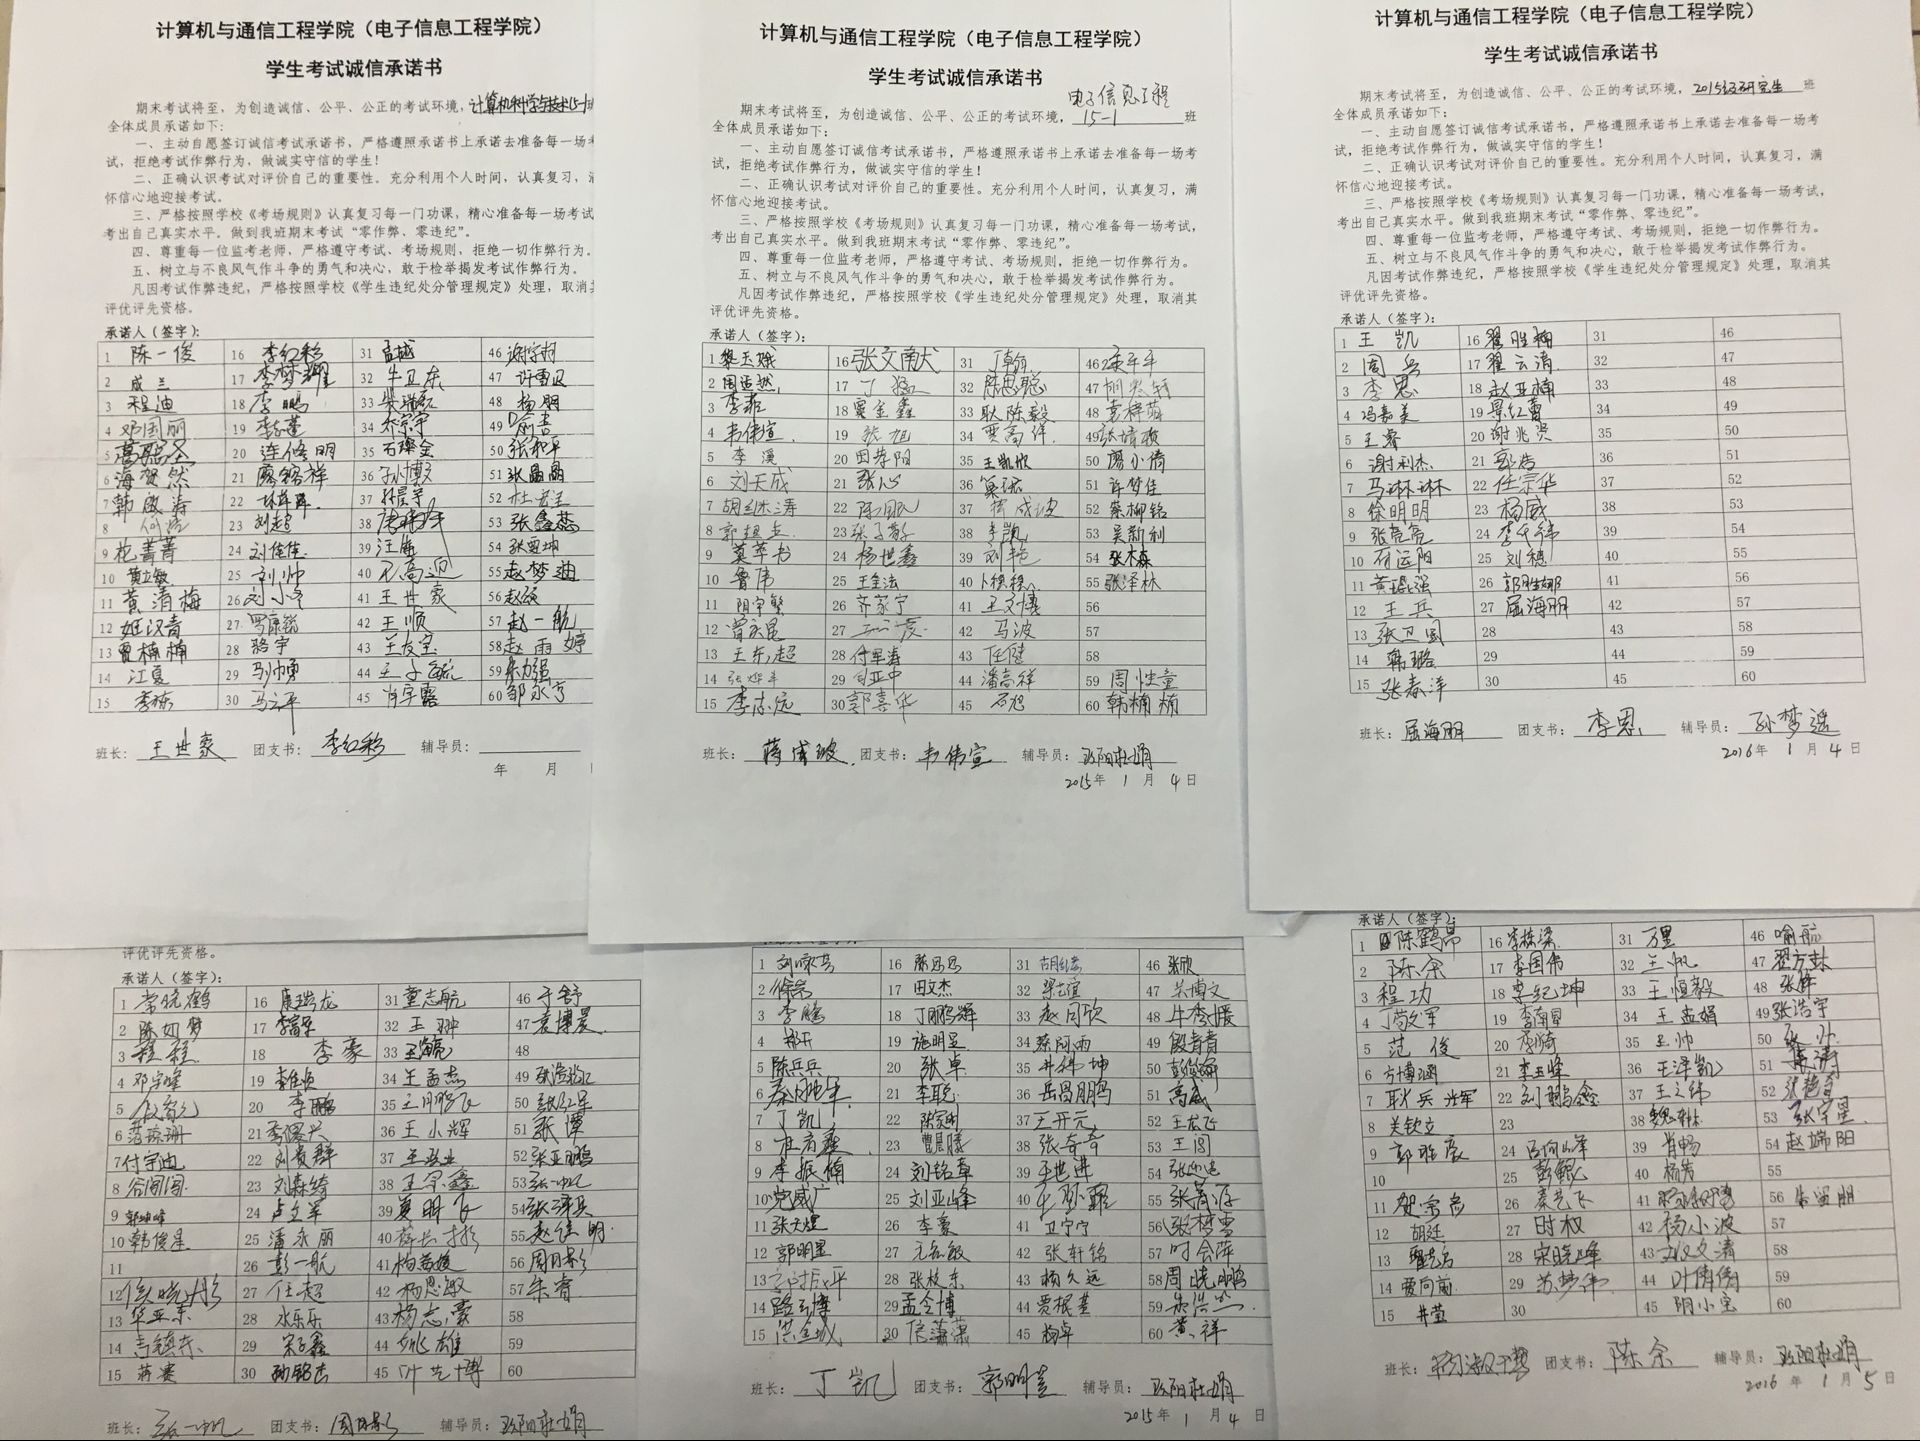 计算机与通信工程学院（电子信息工程学院）
学生考试诚信承诺书
期末考试将至，为创造诚信、公平、公正的考试环境，计算机科学与技术15-1班
全体成员承诺如下：
一、主动自愿签订诚信考试承诺书，严格遵照承诺书上承诺去准备每一场考
试，拒绝考试作弊行为，做诚实守信的学生！
二、正确认识考试对评价自己的重要性。充分利用个人时间，认真复习，满
怀信心地迎接考试。
三、严格按照学校《考场规则》认真复习每一门功课，精心准备每一场考试
考出自己真实水平。做到我班期末考试“零作弊、零违纪”。
四、尊重每一位监考老师，严格遵守考试、考场规则，拒绝一切作弊行为。
五、树立与不良风气作斗争的勇气和决心，敢于检举揭发考试作弊行为。
凡因考试作弊违纪，严格按照学校《学生违纪处分管理规定》处理，取消其
评优评先资格。
承诺人（签字）：
1 陈一俊 16 李红彩 31 孟越 46
2 成兰 17 李梦耀 32 牛卫东 47 许雪贝
3 程迪 18 李鹏 33 48 杨朋
4 邓国丽 19 34 乔宗宇 49 喻喜
5 葛聪圣 20 连修明 35 石璨金 50 张和平
6 海贺然 21 廖铭祥 36 孙博文 51 张晶晶
7 韩啟涛 22 37 孙晨羊 52
8 何流 23 刘超 38 53 张鑫蕊
9 花菁菁 24 刘佳佳 39 汪海 54 张雯坤
10 黄立敏 25 刘帅 40 王高迎 55 赵梦迪
11 黄清梅 26 刘小冬 41 王世豪 56 赵颂
12 姬汉青 27 罗康铭 42 王顺 57 赵一航
13 贾楠楠 28 骆宇 43 王友宝 58 赵雨婷
14 江夏 29 马帅勇 44 59 朱力强
15 李栋 30 马云平 45 肖宇露 60 邹永亨
班长：王世豪 团支书：李红彩 辅导员：
年 月
计算机与通信工程学院（电子信息工程学院）
学生考试诚信承诺书
电子信息工程
期末考试将至，为创造诚信、公平、公正的考试环境，15-1班
全体成员承诺如下：
一、主动自愿签订诚信考试承诺书，严格遵照承诺书上承诺去准备每一场考
试，拒绝考试作弊行为，做诚实守信的学生！
二、正确认识考试对评价自己的重要性。充分利用个人时间，认真复习，满
怀信心地迎接考试。
三、严格按照学校《考场规则》认真复习每一门功课，精心准备每一场考试，
考出自己真实水平。做到我班期末考试“零作弊、零违纪”。
四、尊重每一位监考老师，严格遵守考试、考场规则，拒绝一切作弊行为。
五、树立与不良风气作斗争的勇气和决心，敢于检举揭发考试作弊行为。
凡因考试作弊违纪，严格按照学校《学生违纪处分管理规定》处理，取消其
评优评先资格。
承诺人（签字）：
1 黎玉娥 16 张文献 31 46
2 周造然 17 丁猛 32 陈思聪 47
3 李菲 18 窦金鑫 33 耿陈毅 48 袁梓萌
4 韦伟宣 19 张旭 34 贾高伟 49
5 李溪 20 田荐阳 35 王凯欣 50 廖小倩
6 刘天成 21 张心 36 51 许梦佳
7 胡继涛 22 37 蒋成波 52 蔡柳铭
8 郭超兵 23 38 李凯 53 吴新利
9 莫萃书 24 杨世鑫 39 刘艳 54 张木森
10 鲁伟 25 王金法 40 55 张泽林
11 阴宇繁 26 齐家宁 41 王文博 56
12 曾庆昆 27 42 马波 57
13 王东超 28 付军涛 43 任健 58
14 张烨丰 29 44 潘高祥 59 周性童
15 李志远 30 郭喜华 45 石旭 60 韩楠楠
班长：蒋成波 团支书：韦伟宣 辅导员：欧阳杜娟
2015年 1 月 4 日
计算机与通信工程学院（电子信息工程学院）
学生考试诚信承诺书
期末考试将至，为创造诚信、公平、公正的考试环境，2015级研究生 班
全体成员承诺如下：
一、主动自愿签订诚信考试承诺书，严格遵照承诺书上承诺去准备每一场考
试，拒绝考试作弊行为，做诚实守信的学生！
二、正确认识考试对评价自己的重要性。充分利用个人时间，认真复习，满
怀信心地迎接考试。
三、严格按照学校《考场规则》认真复习每一门功课，精心准备每一场考试，
考出自己真实水平。做到我班期末考试“零作弊、零违纪”。
四、尊重每一位监考老师，严格遵守考试、考场规则，拒绝一切作弊行为。
五、树立与不良风气作斗争的勇气和决心，敢于检举揭发考试作弊行为。
凡因考试作弊违纪，严格按照学校《学生违纪处分管理规定》处理，取消其
评优评先资格。
承诺人（签字）：
1 王凯 16 翟胜楠 31 46
2 周兵 17 翟云清 32 47
3 李恩 18 赵亚楠 33 48
4 冯嘉美 19 景红蕾 34 49
5 王睿 20 谢兆贤 35 50
6 谢利杰 21 郭浩 36 51
7 马琳琳 22 任宗华 37 52
8 徐明明 23 杨威 38 53
9 张亮亮 24 李午伟 39 54
10 石运阳 25 刘穗 40 55
11 黄琨强 26 郭胜娜 41 56
12 王兵 27 屈海朋 42 57
13 张卫国 28 43 58
14 韩璐 29 44 59
15 张春洋 30 45 60
班长：屈海朋 团支书：李恩 辅导员：孙梦遥
2016年 1 月 4 日
评优评先资格。
承诺人（签字）：
1 常晓鹤 16 康瑞龙 31 董志航 46 于舒
2 陈如梦 17 李富军 32 王翀 47 袁博晨
3 程程 18 李豪 33 48
4 邓宇峰 19 李佳贞 34 王孟杰 49
5 20 李鹏 35 王朋鹏飞 50 张红军
6 范琼珊 21 李俊兴 36 王小辉 51 张谭
7 付宇迪 22 刘贵群 37 王益业 52 张亚鹏
8 谷闯闯 23 刘森绮 38 王宗鑫 53 张一帆
9 郭坤峰 24 卢立军 39 夏明飞 54 张泽兵
10 韩俊星 25 潘永丽 40 55 赵佳明
11 26 彭一航 41 杨英媛 56 周月影
12 侯晓彤 27 任超 42 杨思敏 57 朱睿
13 华亚东 28 水乐乐 43 杨志豪 58
14 吉镇东 29 宋子鑫 44 姚雄 59
15 蒋赛 30 孙铭杰 45 叶芝博 60
班长：张一帆 团支书：周月影 辅导员：欧阳杜娟
1 刘咏芸 16 31 46 张欣
2 徐亮 17 田文杰 32 梁志谊 47 朱博文
3 李腾 18 丁鹏辉 33 赵同欣 48 牛秀媛
4 郝开 19 施明显 34 蔡阿雨 49 殷青青
5 陈兵兵 20 张卓 35 井伟坤 50
6 21 李聪 36 岳昌朋鹏 51 高威
7 丁凯 22 37 王开元 52 王龙飞
8 杜有鑫 23 曹晨滕 38 张奇奇 53 王闯
9 李振楠 24 刘铭草 39 平世进 54
10 党威广 25 刘亚峰 40 55
11 张天煜 26 李豪 41 卫宁宁 56 张梦雪
12 郭明星 27 元容敏 42 张轩铭 57 时会萍
13 28 张枚东 43 杨久远 58 周晓鹏
14 路云博 29 孟令博 44 贾棍善 59 朱浩然
15 洪金城 30 信潇潇 45 杨卓 60 黄祥
班长：丁凯 团支书：郭明星 辅导员：欧阳杜娟
2015年 1 月 4 日
承诺人（签字）：
1 陈鹤昂 16 李栋梁 31 万里 46 喻航
2 陈余 17 李国伟 32 王帆 47 翟方林
3 程功 18 李纪坤 33 王恒毅 48 张峰
4 丁敬军 19 李南星 34 王孟娟 49 张浩宇
5 范俊 20 李漪 35 王帅 50 张帅
6 方博涵 21 李玉峰 36 王泽凯 51 张涛
7 耿兵兵 22 刘鹏鑫 37 王之纬 52
8 关钦文 23 38 魏琳 53 张宇星
9 郭胜彦 24 39 肖畅 54 赵端阳
10 25 彭鲲 40 杨发 55
11 贺宗宫 26 秦艺飞 41 56 朱留朋
12 胡廷 27 时权 42 杨小波 57
13 28 宋晓峰 43 58
14 贾向前 29 苏梦伟 44 叶倩倩 59
15 井莹 30 45 阴小宝 60
班长： 团支书：陈余 辅导员：欧阳杜娟
2016 年 1 月 5 日